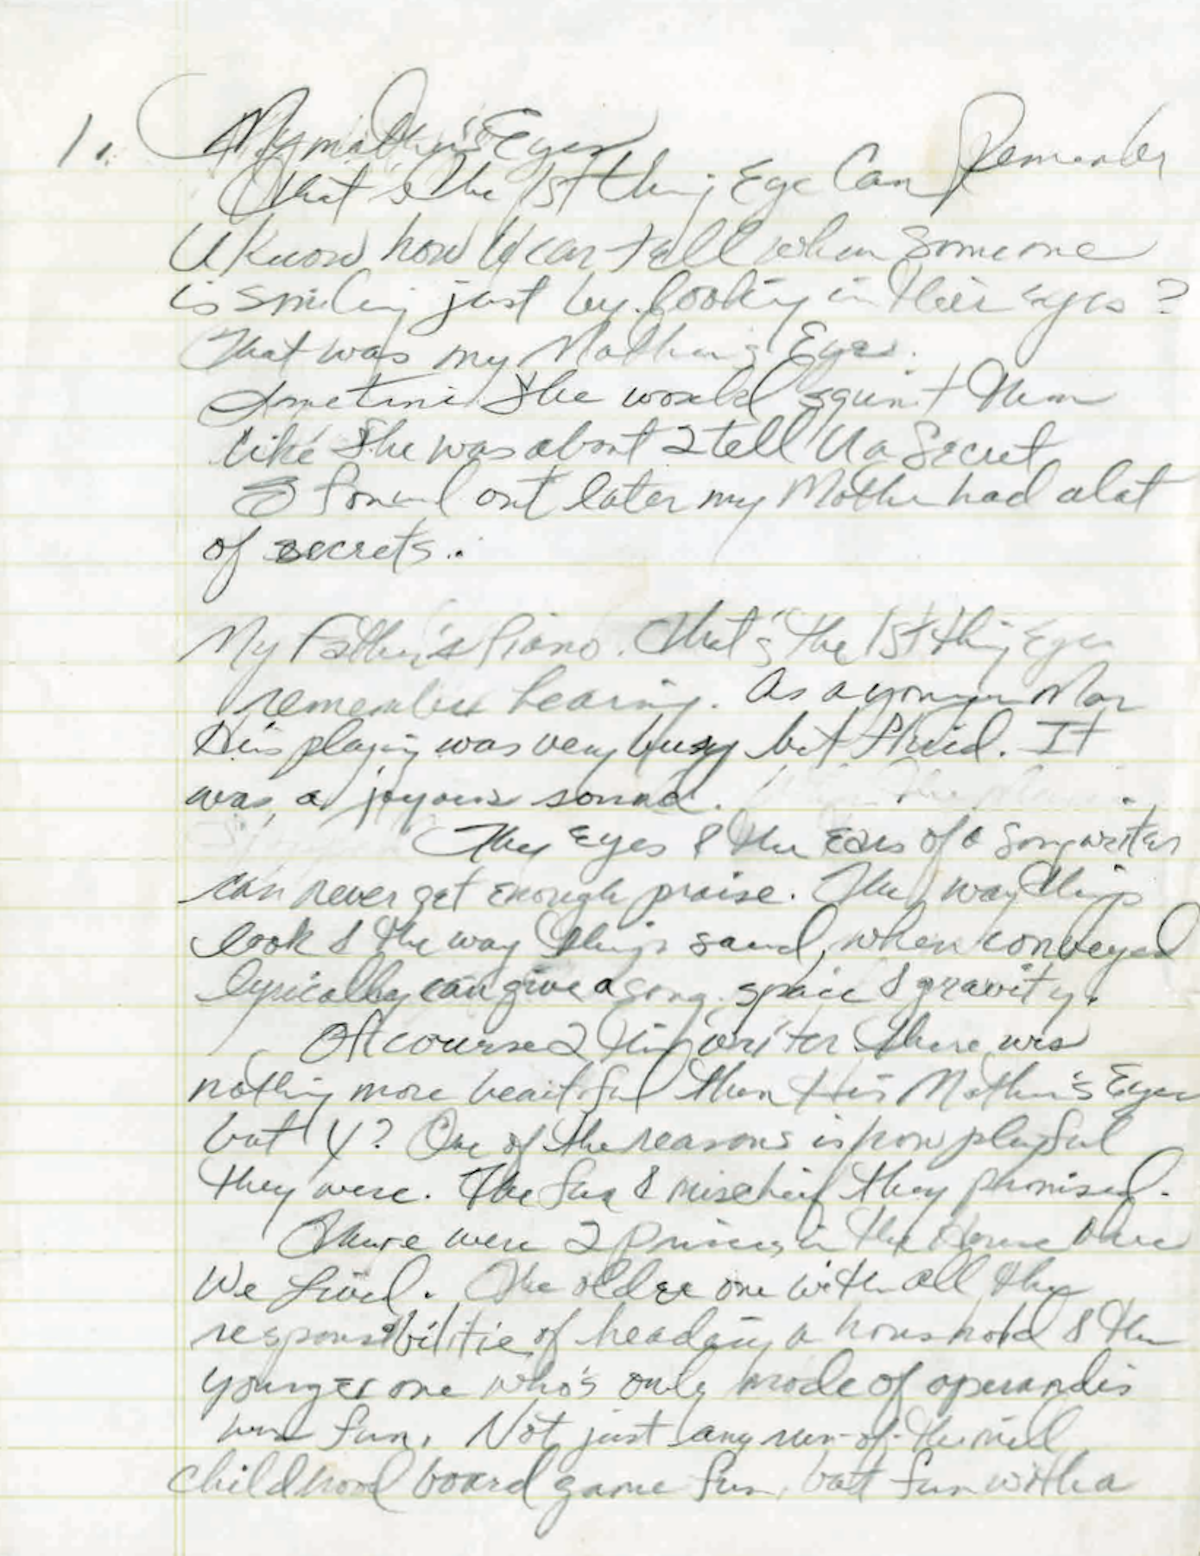 1. My mother's Eyes
That's the 1st thing Eye Can Remember
U know how U can tell when someone
is smiling just by looking in their eyes?
That was my Mother's Eyes.
Sometimes she would squint them
like she was about 2 tell U a secret
found out later my Mother had alot
of secrets..
My Father's Piano. That's the 1st thing Eye
remember hearing. As a younger Man
His playing was very busy but fluid. It
was a joyous sound.
The Eyes & the Ears of a Songwriter
can never get enough praise. The way things
look & the way things sound, when conveyed
lyrically can give a song space & gravity.
Of course 2 this writer there was
nothing more beautiful than His Mother's Eyes
but Y? One of the reasons is how playful
they were. The fun & mischief they promised.
There were 2 Princes in the House where
We Lived. The older one with all the
responsibilities of heading a household & the
younger one who's only mode of operandis
was fun. Not just any run-of-the-mill
childhood board game fun, but fun with a